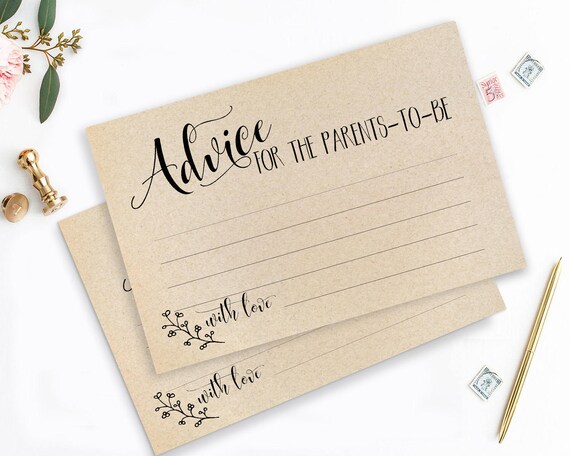 Advice FOR THE PARENTS-TO-BE
with love
with love